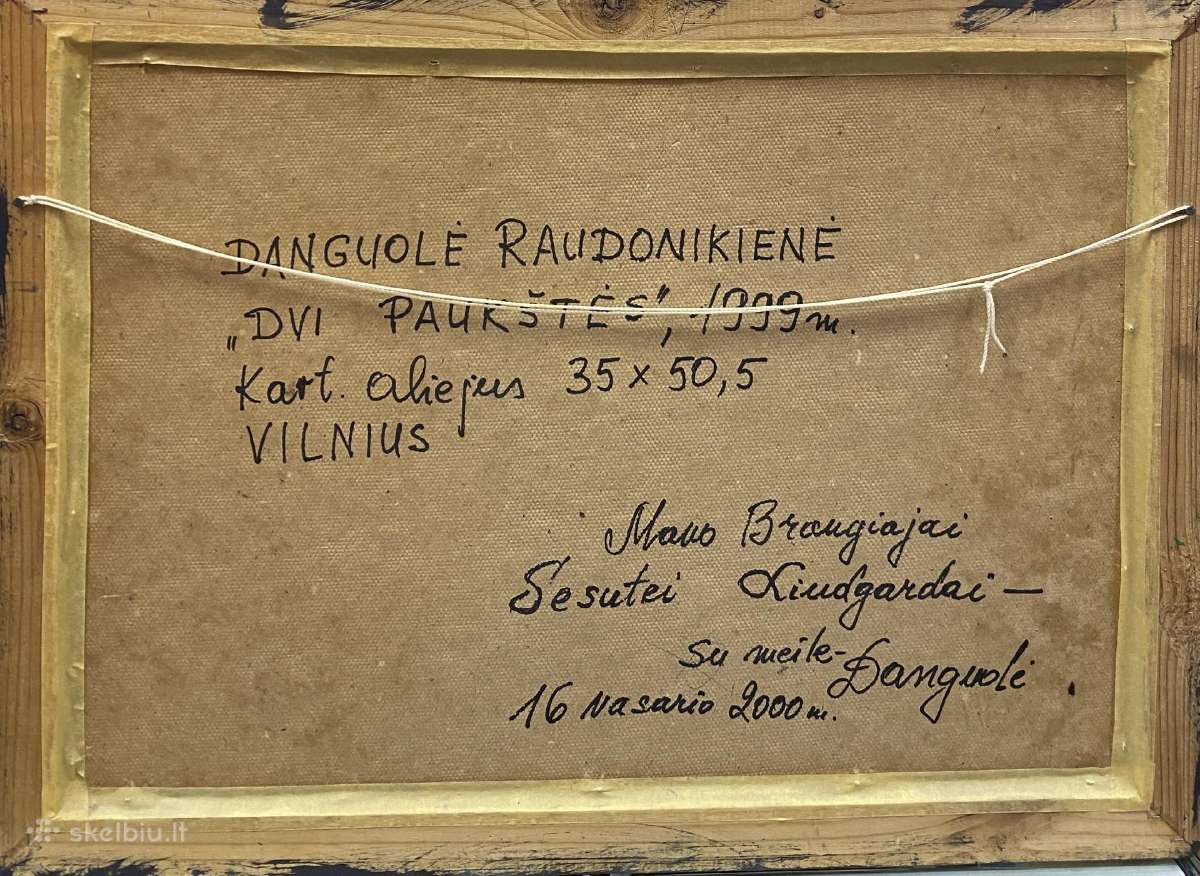 DANGUOLĖ RAUDONIKIENĖ
„DVI PAUKŠTĖS", 1999 m.
Kart. aliejus 35 x 50,5
VILNIUS
Mano Brangiajai
Sesutei Liudgardai —
su meile - Danguolė
16 vasario 2000 m.
skelbiu.lt